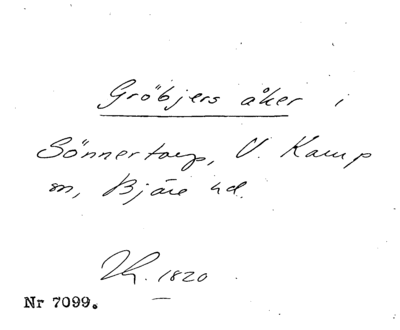 Gröbjers åker i
Sönnertorp, V. Karup
sn, Bjäre hd.
1820
Nr 7099.